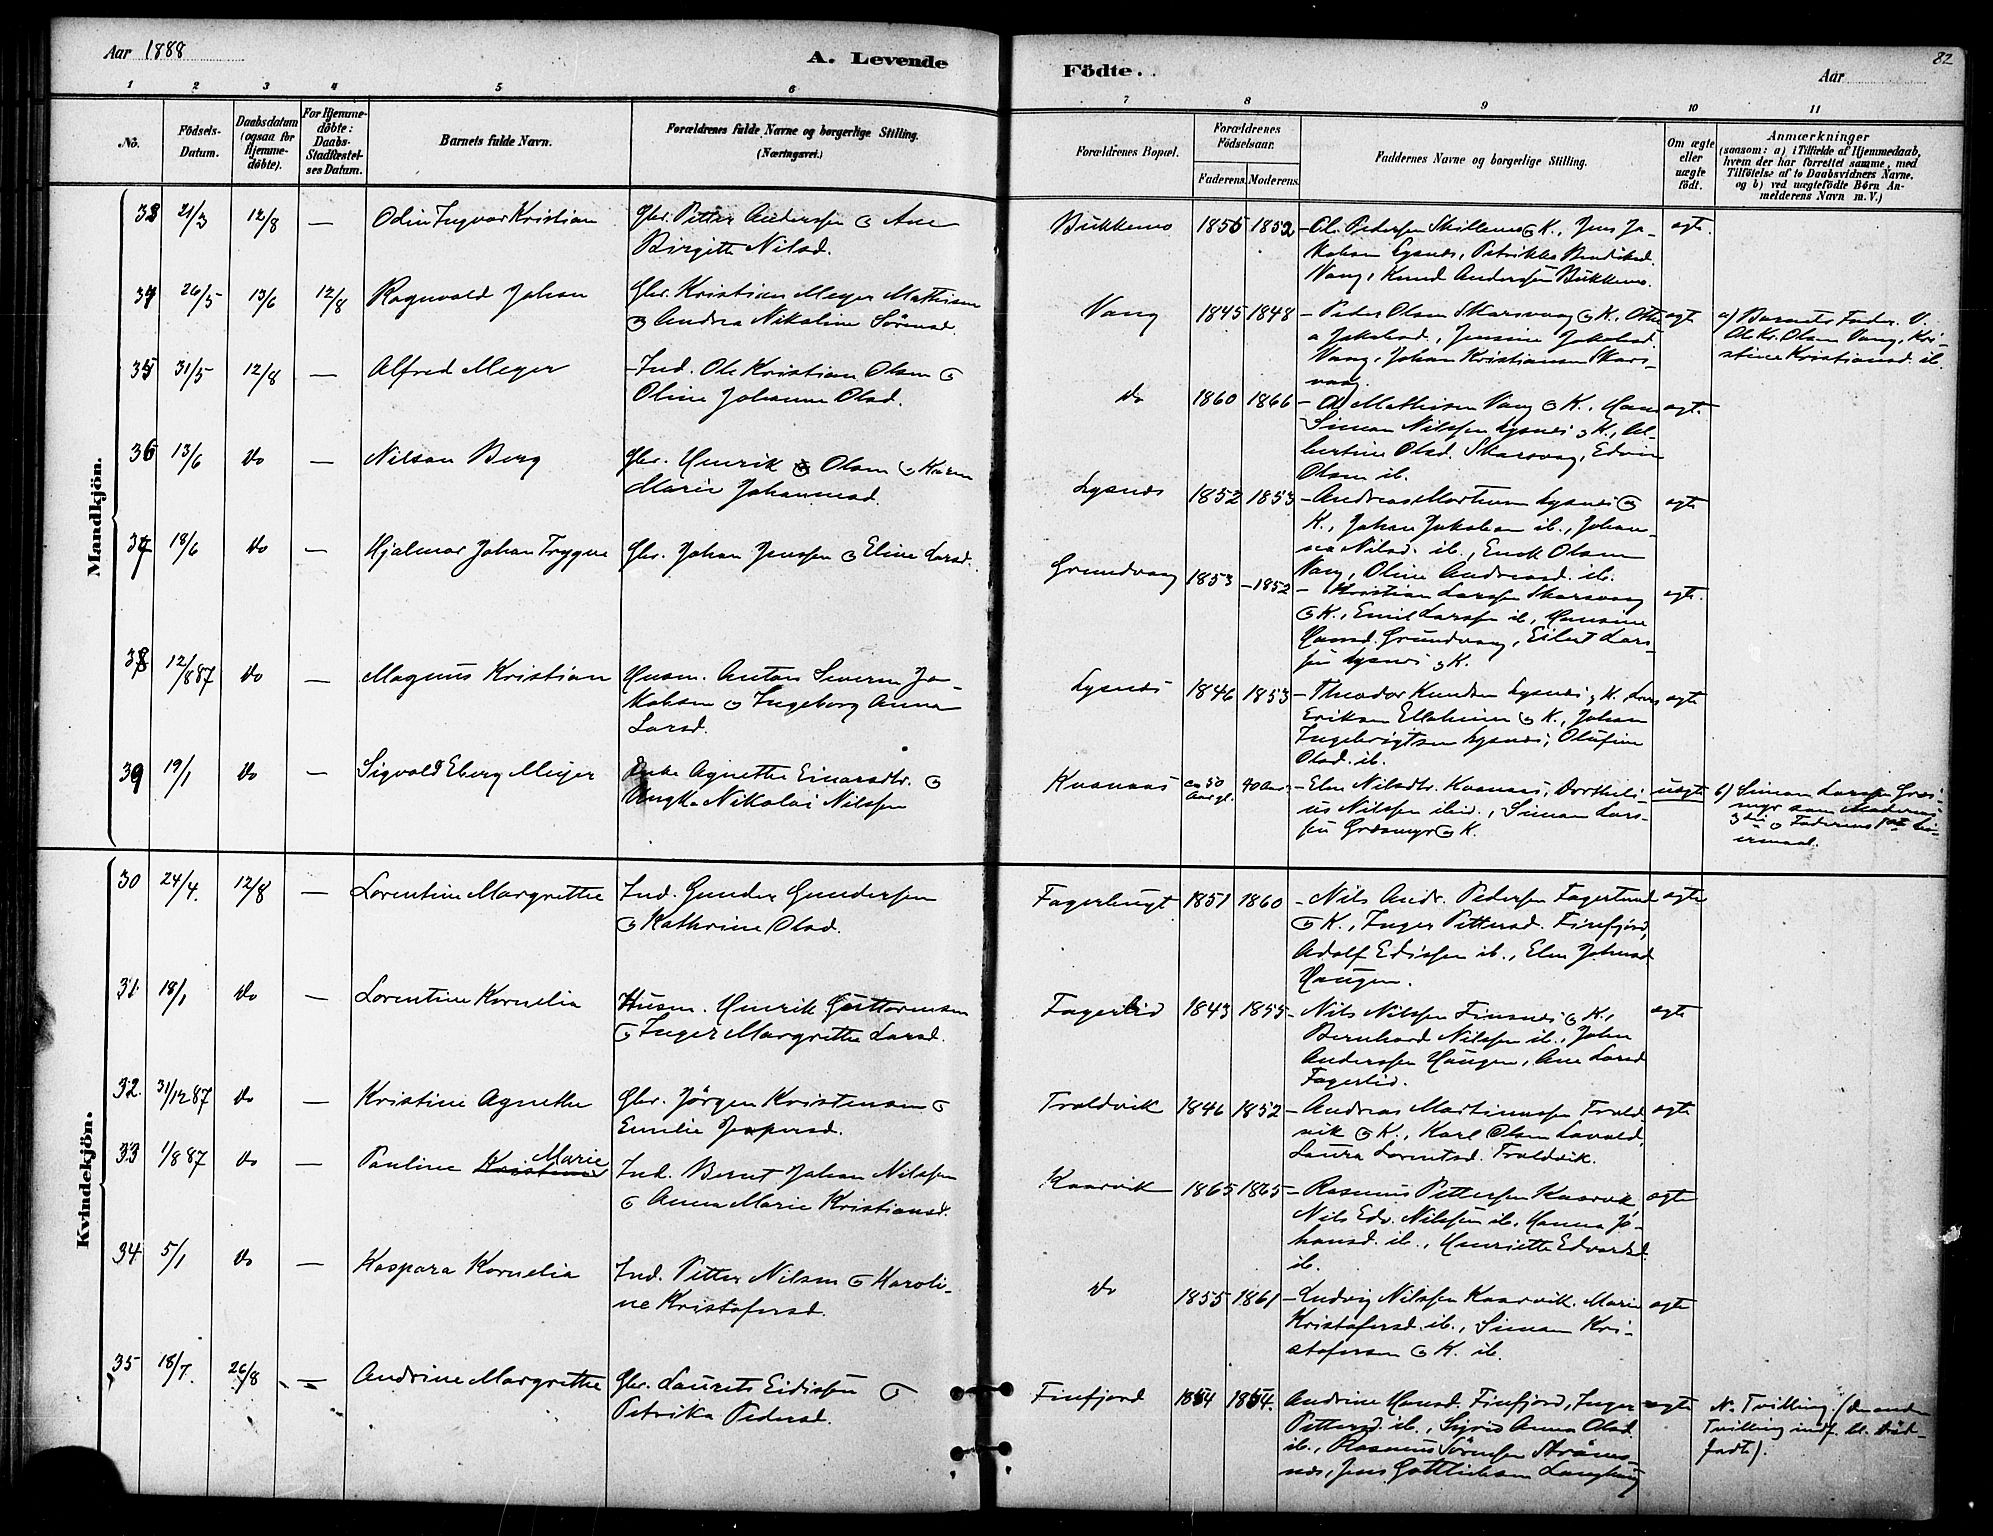 Aar 1888
A. Levende
Födte.
Aar
82
1 2 3 4 5 6 7 8 9 10 11
No.
Födsels-
Datum.
Daabsdatum
(ogsaa for
Hjemme-
döbte).
For Hjemme-
döbte:
Daabs-
Stadfæstel-
ses Datum.
Barnets fulde Navn.
Forældrenes fulde Navne og borgerlige Stilling.
(Næringsvei.)
Forældrenes Bopæl.
Forældrenes
Födselsaar.
Faderens. Moderens.
Faddernes Navne og borgerlige Stilling.
Om ægte
eller
uægte
født.
Anmærkninger
(saasom: a) i Tilfælde af Hjemmedaab,
hvem der har forrettet samme, med
Tilföielse af to Daabsvidners Navne,
og b) ved uægtefödte Börn An-
melderens Navn m. V.)
Mandkjön.
33 21/3 12/8 — Odin Ingvar Kristian
Gbr. Petter Anderssen og Ane
Birgitte Nilsd.
Bukkemo 1855 1852
Ol. Pedersen Skillemo og K., Jens Ja-
kobsen Lysnes, Petrikke Bendiksd.
Vang, Knud Anderssen Bukkemo.
ægte.
34 26/5 13/6 12/8 Ragnvald Johan
Gbr. Kristian Meyer Mathisen
og Andrea Nikoline Sörensd.
Vang 1845 1848
Peder Olsen Skarsvaag og K. Othe-
a Jakobsd., Jensine Jakobsd.
Vang, Johan Kristiansen Skars-
vaag.
ægte
a) Barnets Fader. V.
Ole Kr. Olsen Vang, Kri-
stine Kristiansd. ib.
35 31/5 12/8 — Alfred Meyer
Ind. Ole Kristian Olsen og
Oline Johanne Olsd.
do 1860 1866
Ol. Mathisen Vang og K., Hans
Simon Nilssen Lysnes og K., Al-
bertine Olsd. Skarsvaag, Edvin
Olsen ib.
ægte.
36 13/6 do — Nilsan Berg
Gbr. Henrik Olsen og Karen
Marie Johannesd.
Lysnes 1852 1853
Andreas Mortensen Lysnes og
K., Johan Jakobsen ib., Johan-
na Nilsd. ib., Enok Olsen
Vang, Oline Andreasd. ib.
ægte
37 18/6 do — Hjalmar Johan Trygve
Gbr. Johan Jenssen og Eline Larsd.
Grundvaag 1853 1852
Kristian Larssen Skarsvaag
og K., Emil Larssen ib., Hansine
Hansd. Grundvaag, Eilert Lars-
sen Lysnes og K.
ægte.
38 12/8 87 do — Magnus Kristian
Husm. Anton Severin Ja-
kobsen og Ingeborg Anna
Larsd.
Lysnes 1846 1853
Theodor Knudsen Lysnes og K. Lars
Eriksen Elleheim og K., Johan
Ingebrigtsen Lysnes, Olufine
Olsd. ib.
ægte
39 19/1 do — Sigvald Eberg Meyer
Enke Agnethe Einarsdtr. og
Ungk. Nikolai Nilssen
Kvanaas ca 50 Aar gl. 40 Aar
Elen Nilsdtr. Kvanaas, Dortheli-
us Nilssen ibid., Simon Lars-
sen Græsmyr og K.
uægte
b) Simon Larssen Græs-
myr som Moderens
3die og Faderens 1ste Lei-
ermaal.
Kvindekjön.
30 24/4. 12/8 — Lorentine Margrethe
Ind. Gunder Gundersen
og Kathrine Olsd.
Fagerbugt 1851 1860
Nils Andr. Pedersen Fagerlund
og K., Inger Pettersd. Finfjord,
Adolf Edissen ib., Elen Johnsd.
Haugen.
ægte
31. 18/1 do — Lorentine Kornelia
Husm. Henrik Guttormsen
og Inger Margrethe Larsd.
Fagerlid 1843 1855
Nils Nilssen Finsnes og K.,
Bernhard Nilssen ib., John
Anderssen Haugen, Ane Larsd.
Fagerlid.
ægte
32. 31/12 87 do — Kristine Agnethe
Gbr. Jörgen Kristensen og
Emilie Jespersd.
Troldvik 1846 1852
Andreas Martinussen Trold-
vik og K., Karl Olsen Lavold,
Laura Lorentsd. Troldvik.
ægte
33 1/8 87 do — Pauline Kristine Marie
Ind. Bernt Johan Nilssen
og Anna Marie Kristiansd.
Kaarvik 1865 1865
Rasmus Pettersen Kaarvik,
Nils Edv. Nilssen ib., Hanna Jo-
hansd. ib., Henriette Edvardsd.
ib.
ægte
34 5/1 do — Kaspara Kornelia
Ind. Petter Nilsen og Karoli-
ne Kristofersd.
do 1855 1861
Ludvig Nilssen Kaarvik, Marie
Kristofersd. ib., Simon Kri-
stofersen og K. ib.
ægte
35 18/7. 26/8 — Andrine Margrethe
Gbr. Laurits Eidissen og
Petrika Pedersd.
Finfjord 1854 1854.
Andrine Hansd. Finfjord, Inger
Pettersd. ib., Sigrid Anna Olsd.
ib., Rasmus Sörensen Ströms-
nes, Jens Gottliebsen Langhaug
ægte
N. Tvilling. (den anden
Tvilling indf. bl. död-
födte).